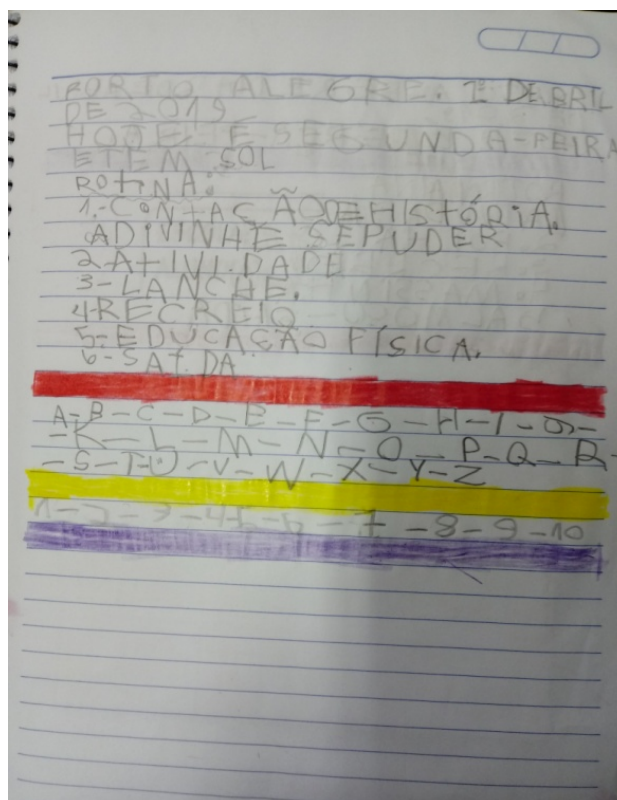 PORTO ALEGRE. 1º DEBRIL
DE 2019
HOJE E SEGUNDA-PEIRA
ETEM SOL
ROtINA:
1.-CONtAÇÃODEHIStÓRiA.
ADIVINHE SEPUDER
2-AtIVI.DADE
3-LANCHE.
4-RECREIO
5-EDUCAÇÃO FÍSICA.
6-SAI.DA
A-B-C-D-E-F-G-H-I-J-
-K-L-M-N-O-P-Q-R-
-S-T-U-V-W-X-Y-Z
1-2-3-45-6-7-8-9-10